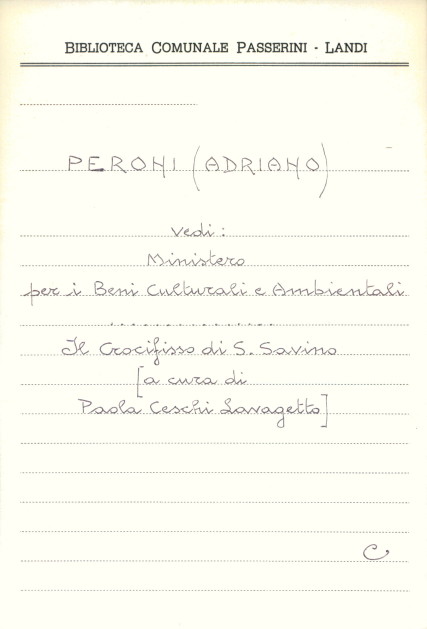 BIBLIOTECA COMUNALE PASSERINI - LANDI
PERONI (ADRIANO)
vedi:
Ministero
per i Beni Culturali e Ambientali
. . . . . . . . . . . . . .
Il Crocifisso di S. Savino
[a cura di
Paola Ceschi Lavagetto]
C